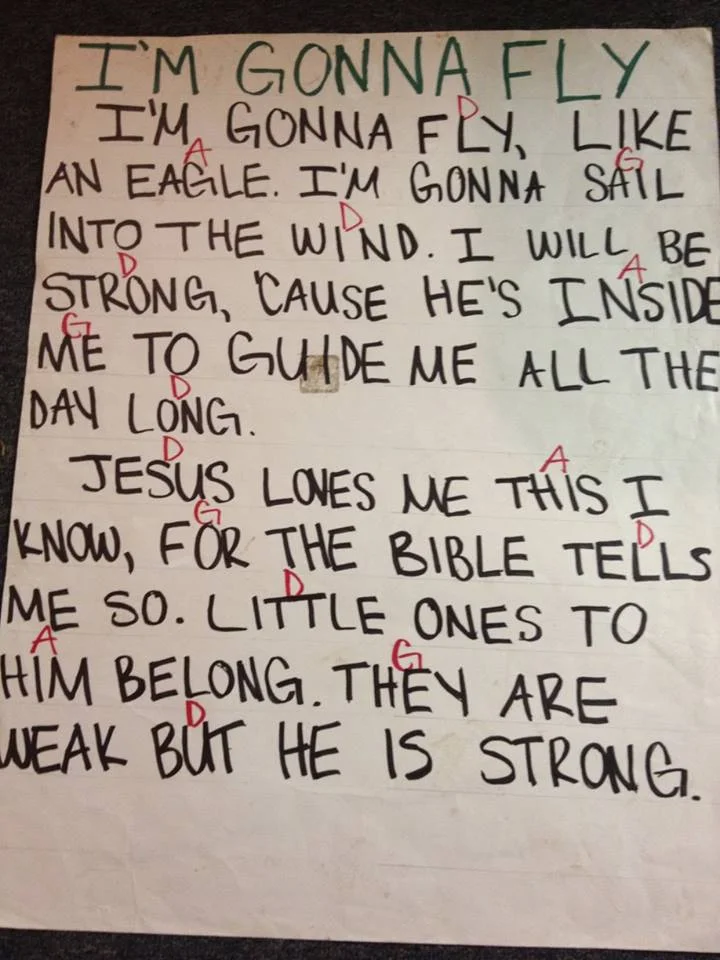 I'M GONNA FLY
D
I'M GONNA FLY, LIKE
A G
AN EAGLE. I'M GONNA SAIL
D
INTO THE WIND. I WILL BE
D A
STRONG, 'CAUSE HE'S INSIDE
G
ME TO GUIDE ME ALL THE
D
DAY LONG.
D A
JESUS LOVES ME THIS I
G D
KNOW, FOR THE BIBLE TELLS
D
ME SO. LITTLE ONES TO
A G
HIM BELONG. THEY ARE
D
WEAK BUT HE IS STRONG.